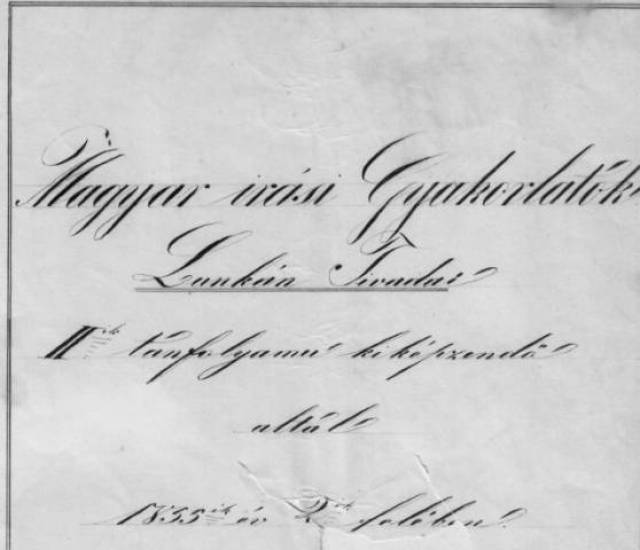 Magyar irási Gyakorlatók
Lunkán Tivadar
IIik tanfolyamú kiképzendő
altal
1855ik év 2ik felében